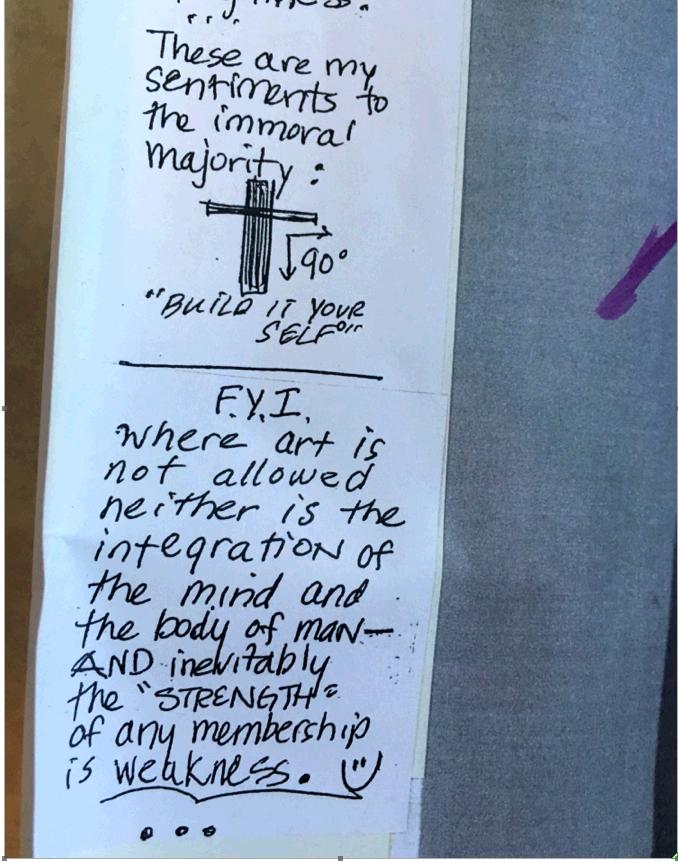 These are my
sentiments to
the immoral
majority:
90°
"BUILD IT YOUR
SELF"
F.Y.I.
Where art is
not allowed
neither is the
integration of
the mind and
the body of man—
AND inevitably
the "STRENGTH"
of any membership
is weakness.